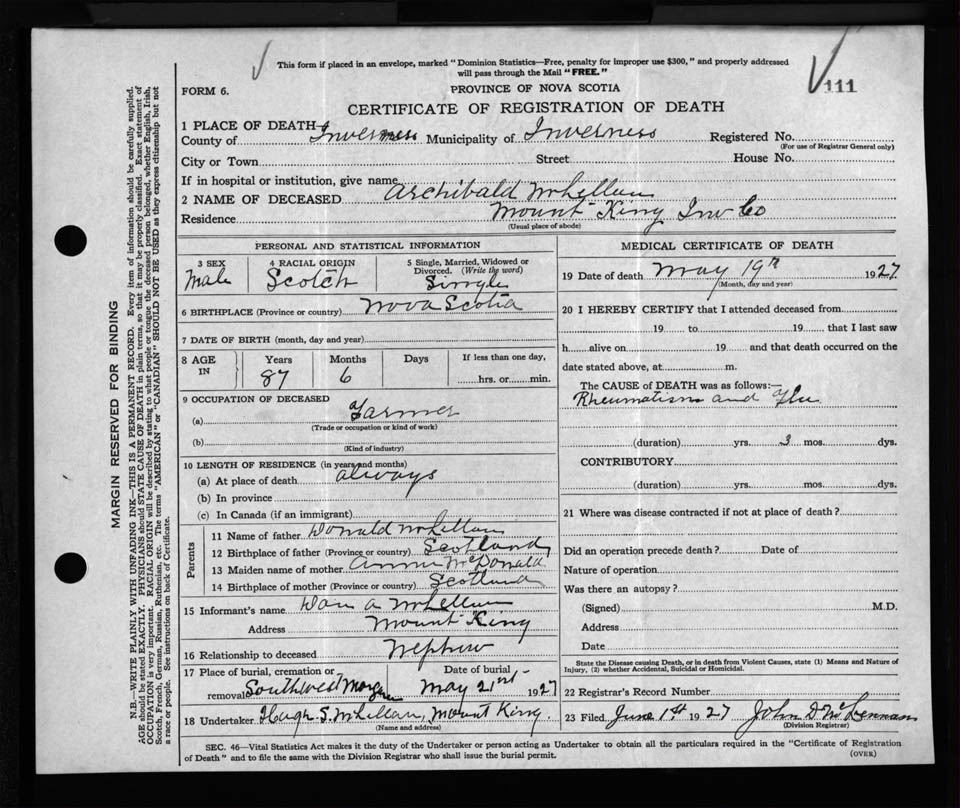 This form if placed in an envelope, marked "Dominion Statistics—Free, penalty for improper use $300," and properly addressed
will pass through the Mail "FREE."
FORM 6.
PROVINCE OF NOVA SCOTIA
111
CERTIFICATE OF REGISTRATION OF DEATH
1 PLACE OF DEATH—
County of Inverness Municipality of Inverness Registered No.
(For use of Registrar General only)
City or Town Street House No.
If in hospital or institution, give name
2 NAME OF DECEASED Archibald McLellan
Residence Mount King Inv Co
(Usual place of abode)
PERSONAL AND STATISTICAL INFORMATION
3 SEX 4 RACIAL ORIGIN 5 Single, Married, Widowed or Divorced. (Write the word)
Male Scotch Single
6 BIRTHPLACE (Province or country) Nova Scotia
7 DATE OF BIRTH (month, day and year)
8 AGE IN Years Months Days If less than one day,
87 6 hrs. or min.
9 OCCUPATION OF DECEASED
(a) Farmer
(Trade or occupation or kind of work)
(b)
(Kind of industry)
10 LENGTH OF RESIDENCE (in years and months)
(a) At place of death always
(b) In province
(c) In Canada (if an immigrant)
Parents
11 Name of father Donald McLellan
12 Birthplace of father (Province or country) Scotland
13 Maiden name of mother Annie McDonald
14 Birthplace of mother (Province or country) Scotland
15 Informant's name Dan A McLellan
Address Mount King
16 Relationship to deceased Nephew
17 Place of burial, cremation or removal Southwest Margaree Date of burial May 21st 1927
18 Undertaker Hugh S. McLellan, Mount King.
(Name and address)
MEDICAL CERTIFICATE OF DEATH
19 Date of death May 19th 1927
(Month, day and year)
20 I HEREBY CERTIFY that I attended deceased from
19 to 19 that I last saw
h alive on 19 and that death occurred on the
date stated above, at m.
The CAUSE OF DEATH was as follows:—
Rheumatism and Flu
(duration) yrs. 3 mos. dys.
CONTRIBUTORY
(duration) yrs. mos. dys.
21 Where was disease contracted if not at place of death?
Did an operation precede death? Date of
Nature of operation
Was there an autopsy?
(Signed) M.D.
Address
Date
State the Disease causing Death, or in death from Violent Causes, state (1) Means and Nature of
Injury, (2) whether Accidental, Suicidal or Homicidal.
22 Registrar's Record Number
23 Filed June 1st 1927 John D. McLennan
(Division Registrar)
SEC. 46—Vital Statistics Act makes it the duty of the Undertaker or person acting as Undertaker to obtain all the particulars required in the "Certificate of Registration
of Death" and to file the same with the Division Registrar who shall issue the burial permit.
(OVER)
MARGIN RESERVED FOR BINDING
N.B.—WRITE PLAINLY WITH UNFADING INK—THIS IS A PERMANENT RECORD. Every item of information should be carefully supplied.
AGE should be stated EXACTLY. PHYSICIANS should STATE CAUSE OF DEATH in plain terms, so that it may be properly classified. Exact statement of
OCCUPATION is very important. RACIAL ORIGIN will be described by stating to what people or tongue the deceased person belonged, whether English, Irish,
Scotch, French, German, Russian, Ruthenian, etc. The terms "AMERICAN" or "CANADIAN" SHOULD NOT BE USED as they express citizenship but not
a race or people. See instructions on back of Certificate.